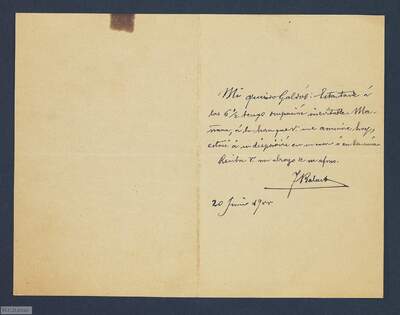 Mi querido Galdós: Esta tarde á
las 6½ tengo ocupación inevitable. Ma-
ñana, á la hora que V. me anuncie hoy,
estaré á su disposición en mi casa ó en la suya
Reciba V. un abrazo de su afmo.
20 Junio 1900